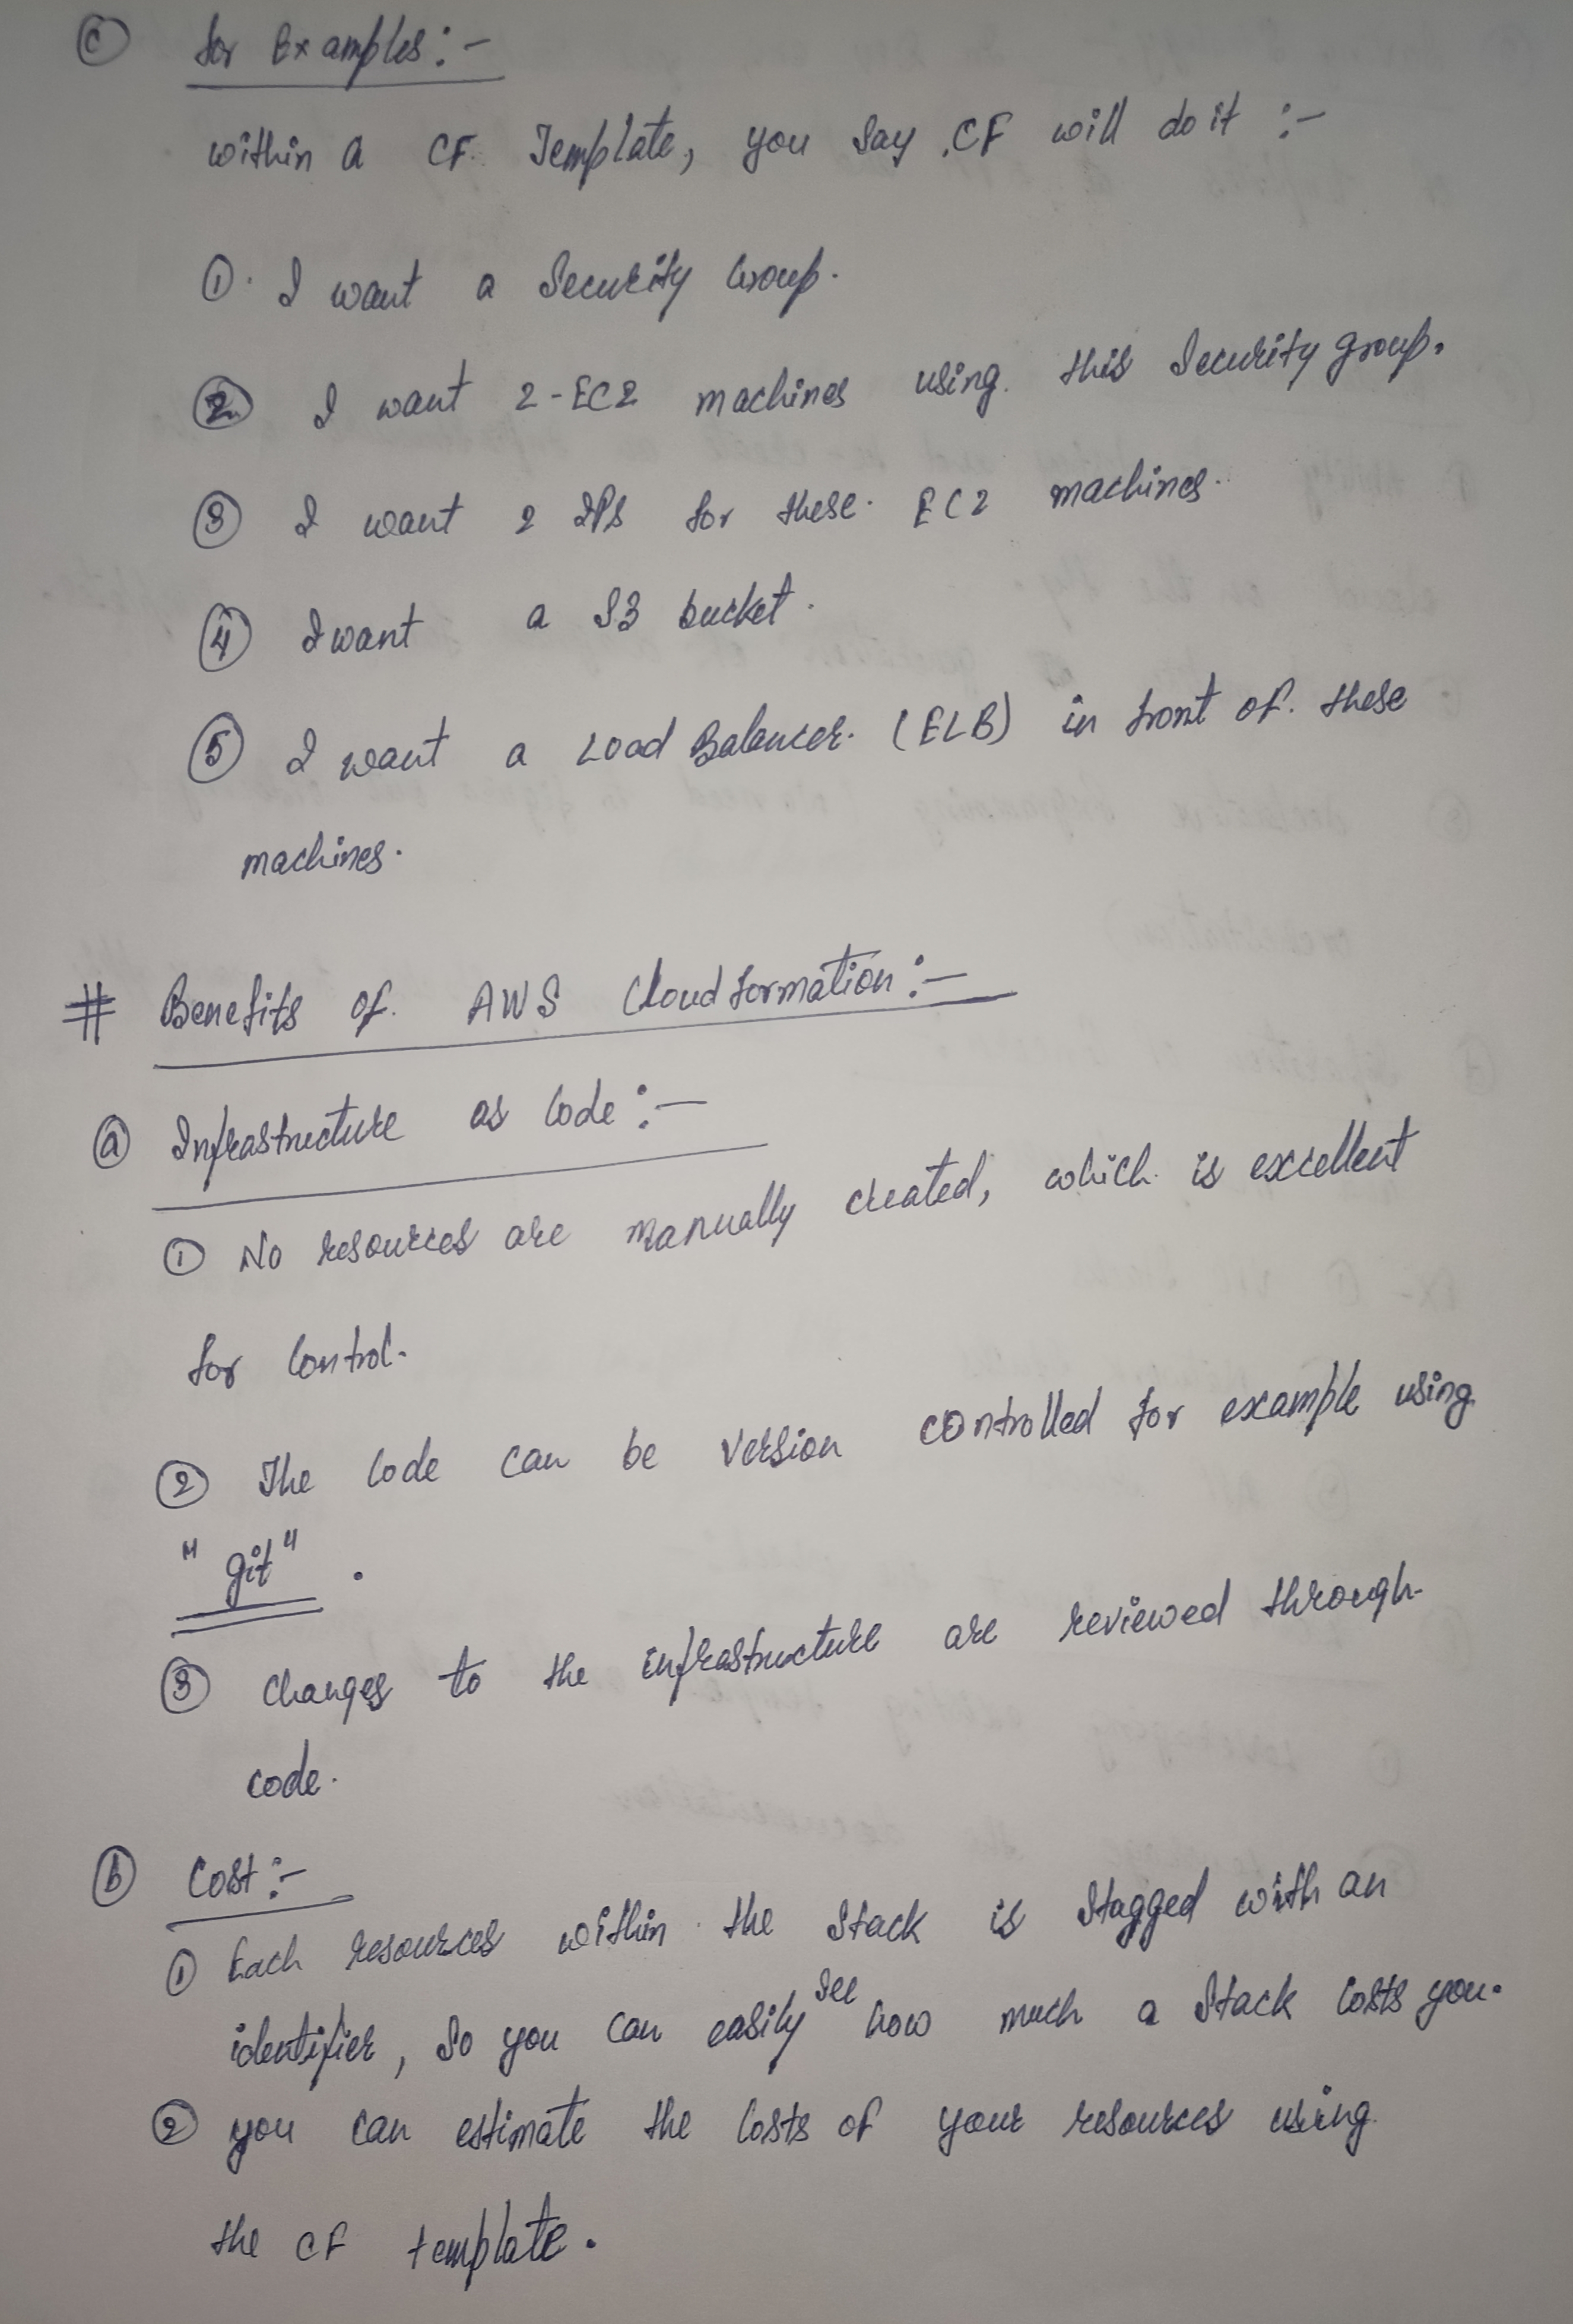 ⓒ for Examples:-
within a CF Template, you say CF will do it :-
① I want a Security Group.
② I want 2-EC2 machines using this Security group.
③ I want 2 IPs for these EC2 machines.
④ I want a S3 bucket.
⑤ I want a Load Balancer (ELB) in front of these
machines.
# Benefits of AWS Cloudformation:-
ⓐ Infrastructure as Code:-
① No resources are manually created, which is excellent
for Control.
② The Code can be version controlled for example using
"git".
③ Changes to the infrastructure are reviewed through
code.
ⓑ Cost:-
① Each resources within the Stack is Stagged with an
identifier, So you can easily see how much a Stack Costs you.
② you can estimate the Costs of your resources using
the CF template.